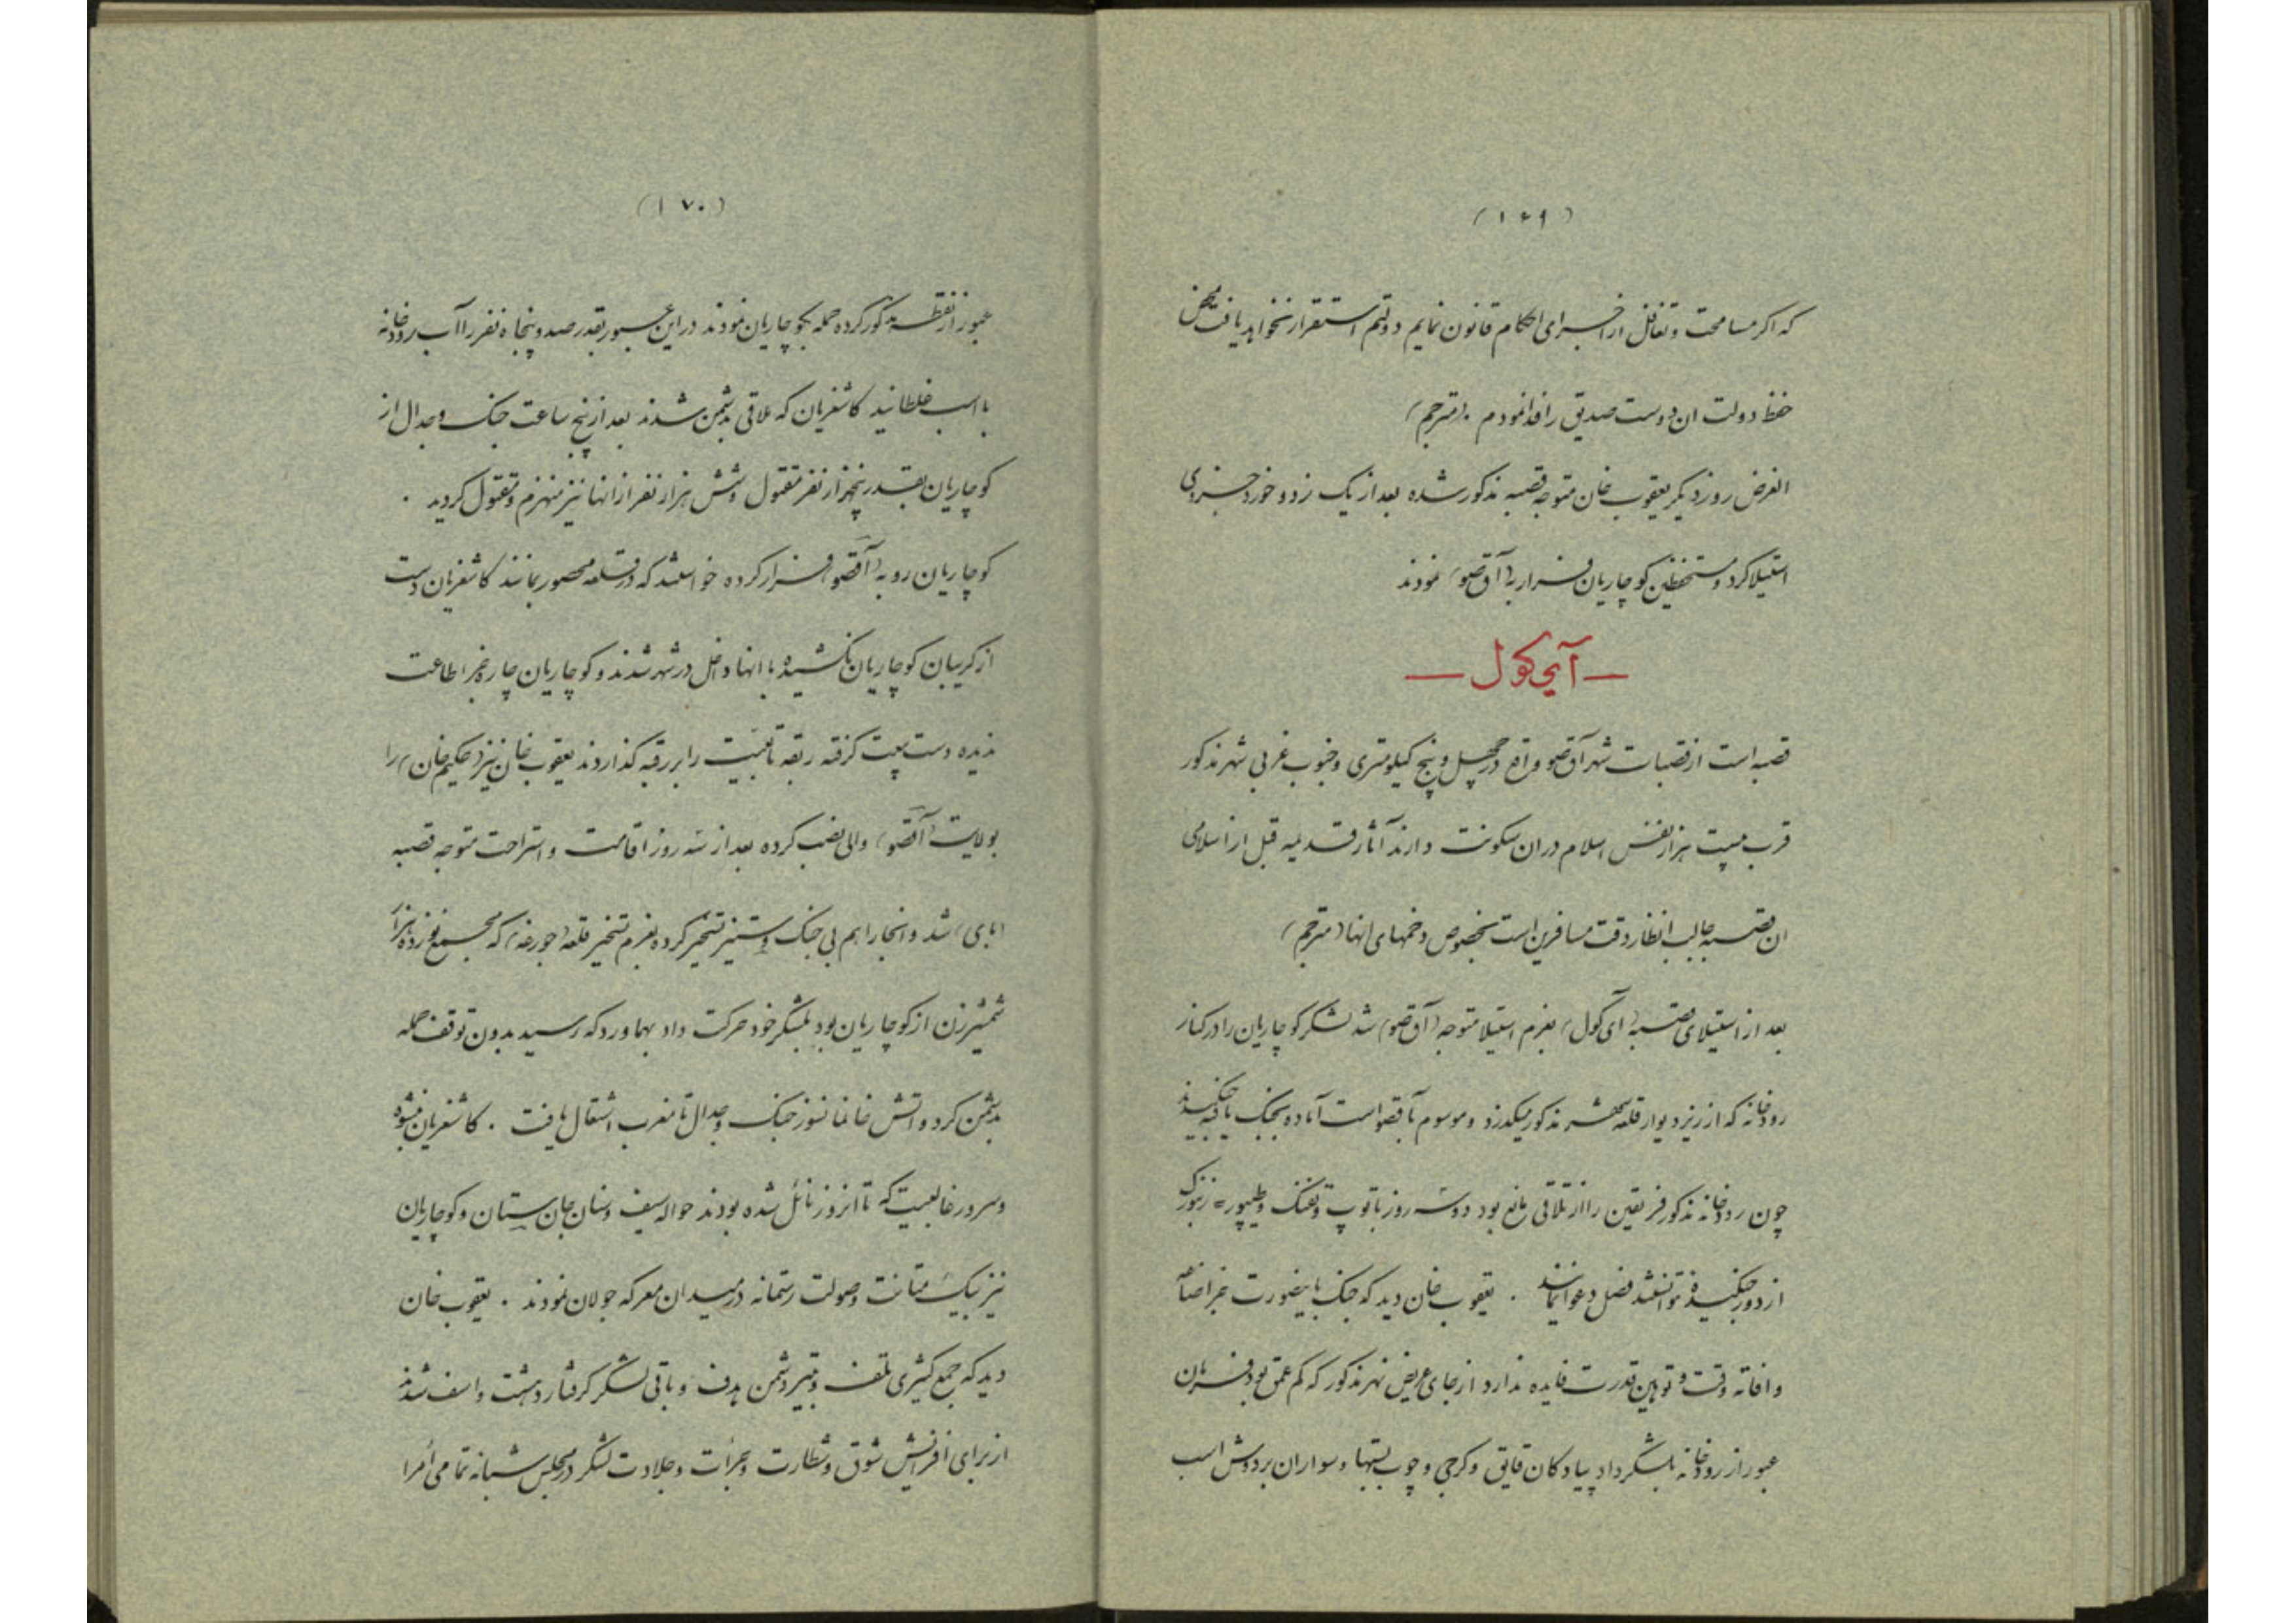 (۱۶۹)
که اکر مسامحت و تغافل از اجرای احکام قانون نمایم دولتم استقرار نخواهد یافت محض
حفظ دولت ان دوست صدیق را فدا نمودم . (مترجم)
الغرض روز دیکر یعقوب خان متوجه قصبه مذکور شده بعد از یک زد و خورد جزوی
استیلا کرد و مستحفظین کوچاریان فرار به (آق صو) نمودند
— آی کول —
قصبه است از قصبات شهر آق صو واقع در چهل و پنج کیلومتری و جنوب غربی شهر مذکور
قرب بیست هزار نفس اسلام در ان سکونت دارند آثار قدیمه قبل از اسلامی
ان قصبه جالب انظار دقت مسافرین است بخصوص دخمهای انها (مترجم)
بعد از استیلای قصبه (آی کول) بعزم استیلا متوجه (آق صو) شد لشکر کوچاریان را در کنار
رودخانه که از زیر دیوار قلعه شهر مذکور میکذرد و موسوم بآقصو است آماده بجنک یافته جنکیدند
چون رودخانه مذکور فریقین را از تلاقی مانع بود دو سه روز با توپ و تفنک و طیپور = زنبورک
از دور جنکیده نتوانستند فصل دعوا نمایند . یعقوب خان دید که جنک باینصورت بجز اضاعه
و افاته وقت و توهین قدرت فایده ندارد از جای عریض نهر مذکور که کم عمق بود فرمان
عبور از رودخانه بلشکر داد پیادکان قایق و کرجی و چوب بستها و سواران بر دوش اسب
(۱۷۰)
عبور از نقطه مذکور کرده حمله بکوچاریان نمودند در این عبور بقدر صد و پنجاه نفر را آب رودخانه
با اسب غلطانید کاشغریان که ملاقی بدشمن شدند بعد از پنج ساعت جنک و جدال از
کوچاریان بقدر پنجهزار نفر مقتول و شش هزار نفر از انها نیز منهزم و مقتول کردید .
کوچاریان رو به (آقصو) فرار کرده خواستند که در قلعه محصور بمانند کاشغریان دست
از کریبان کوچاریان نکشیده با انها داخل در شهر شدند و کوچاریان چاره بجز اطاعت
ندیده دست بیعت کرفته ربقه تابعیت را بر رقبه کذاردند یعقوب خان نیز (حکیم خان) را
بولایت (آقصو) والی نصب کرده بعد از سه روز اقامت و استراحت متوجه قصبه
(بای) شد و انجا را هم بی جنک و ستیز تسخیر کرده بعزم تسخیر قلعه (جورغه) که مجمع نوزده هزار
شمشیرزن از کوچاریان بود بلشکر خود حرکت داد بهماورد که رسید بدون توقف حمله
بدشمن کرد و اتش خانمانسوز جنک و جدال تا مغرب اشتعال یافت . کاشغریان بنشوه
و سرور غالبیت که تا انروز نائل شده بودند حواله سیف و سنان جان ستان و کوچاریان
نیز بیک متانت و صولت رستمانه در میدان معرکه جولان نمودند . یعقوب خان
دید که جمع کثیری تلف و بتیر دشمن هدف و باقی لشکر کرفتار دهشت و اسف شدند
از برای افزایش شوق و شطارت و جرأت و جلادت لشکر در مجلس شبانه تمامی أمرا